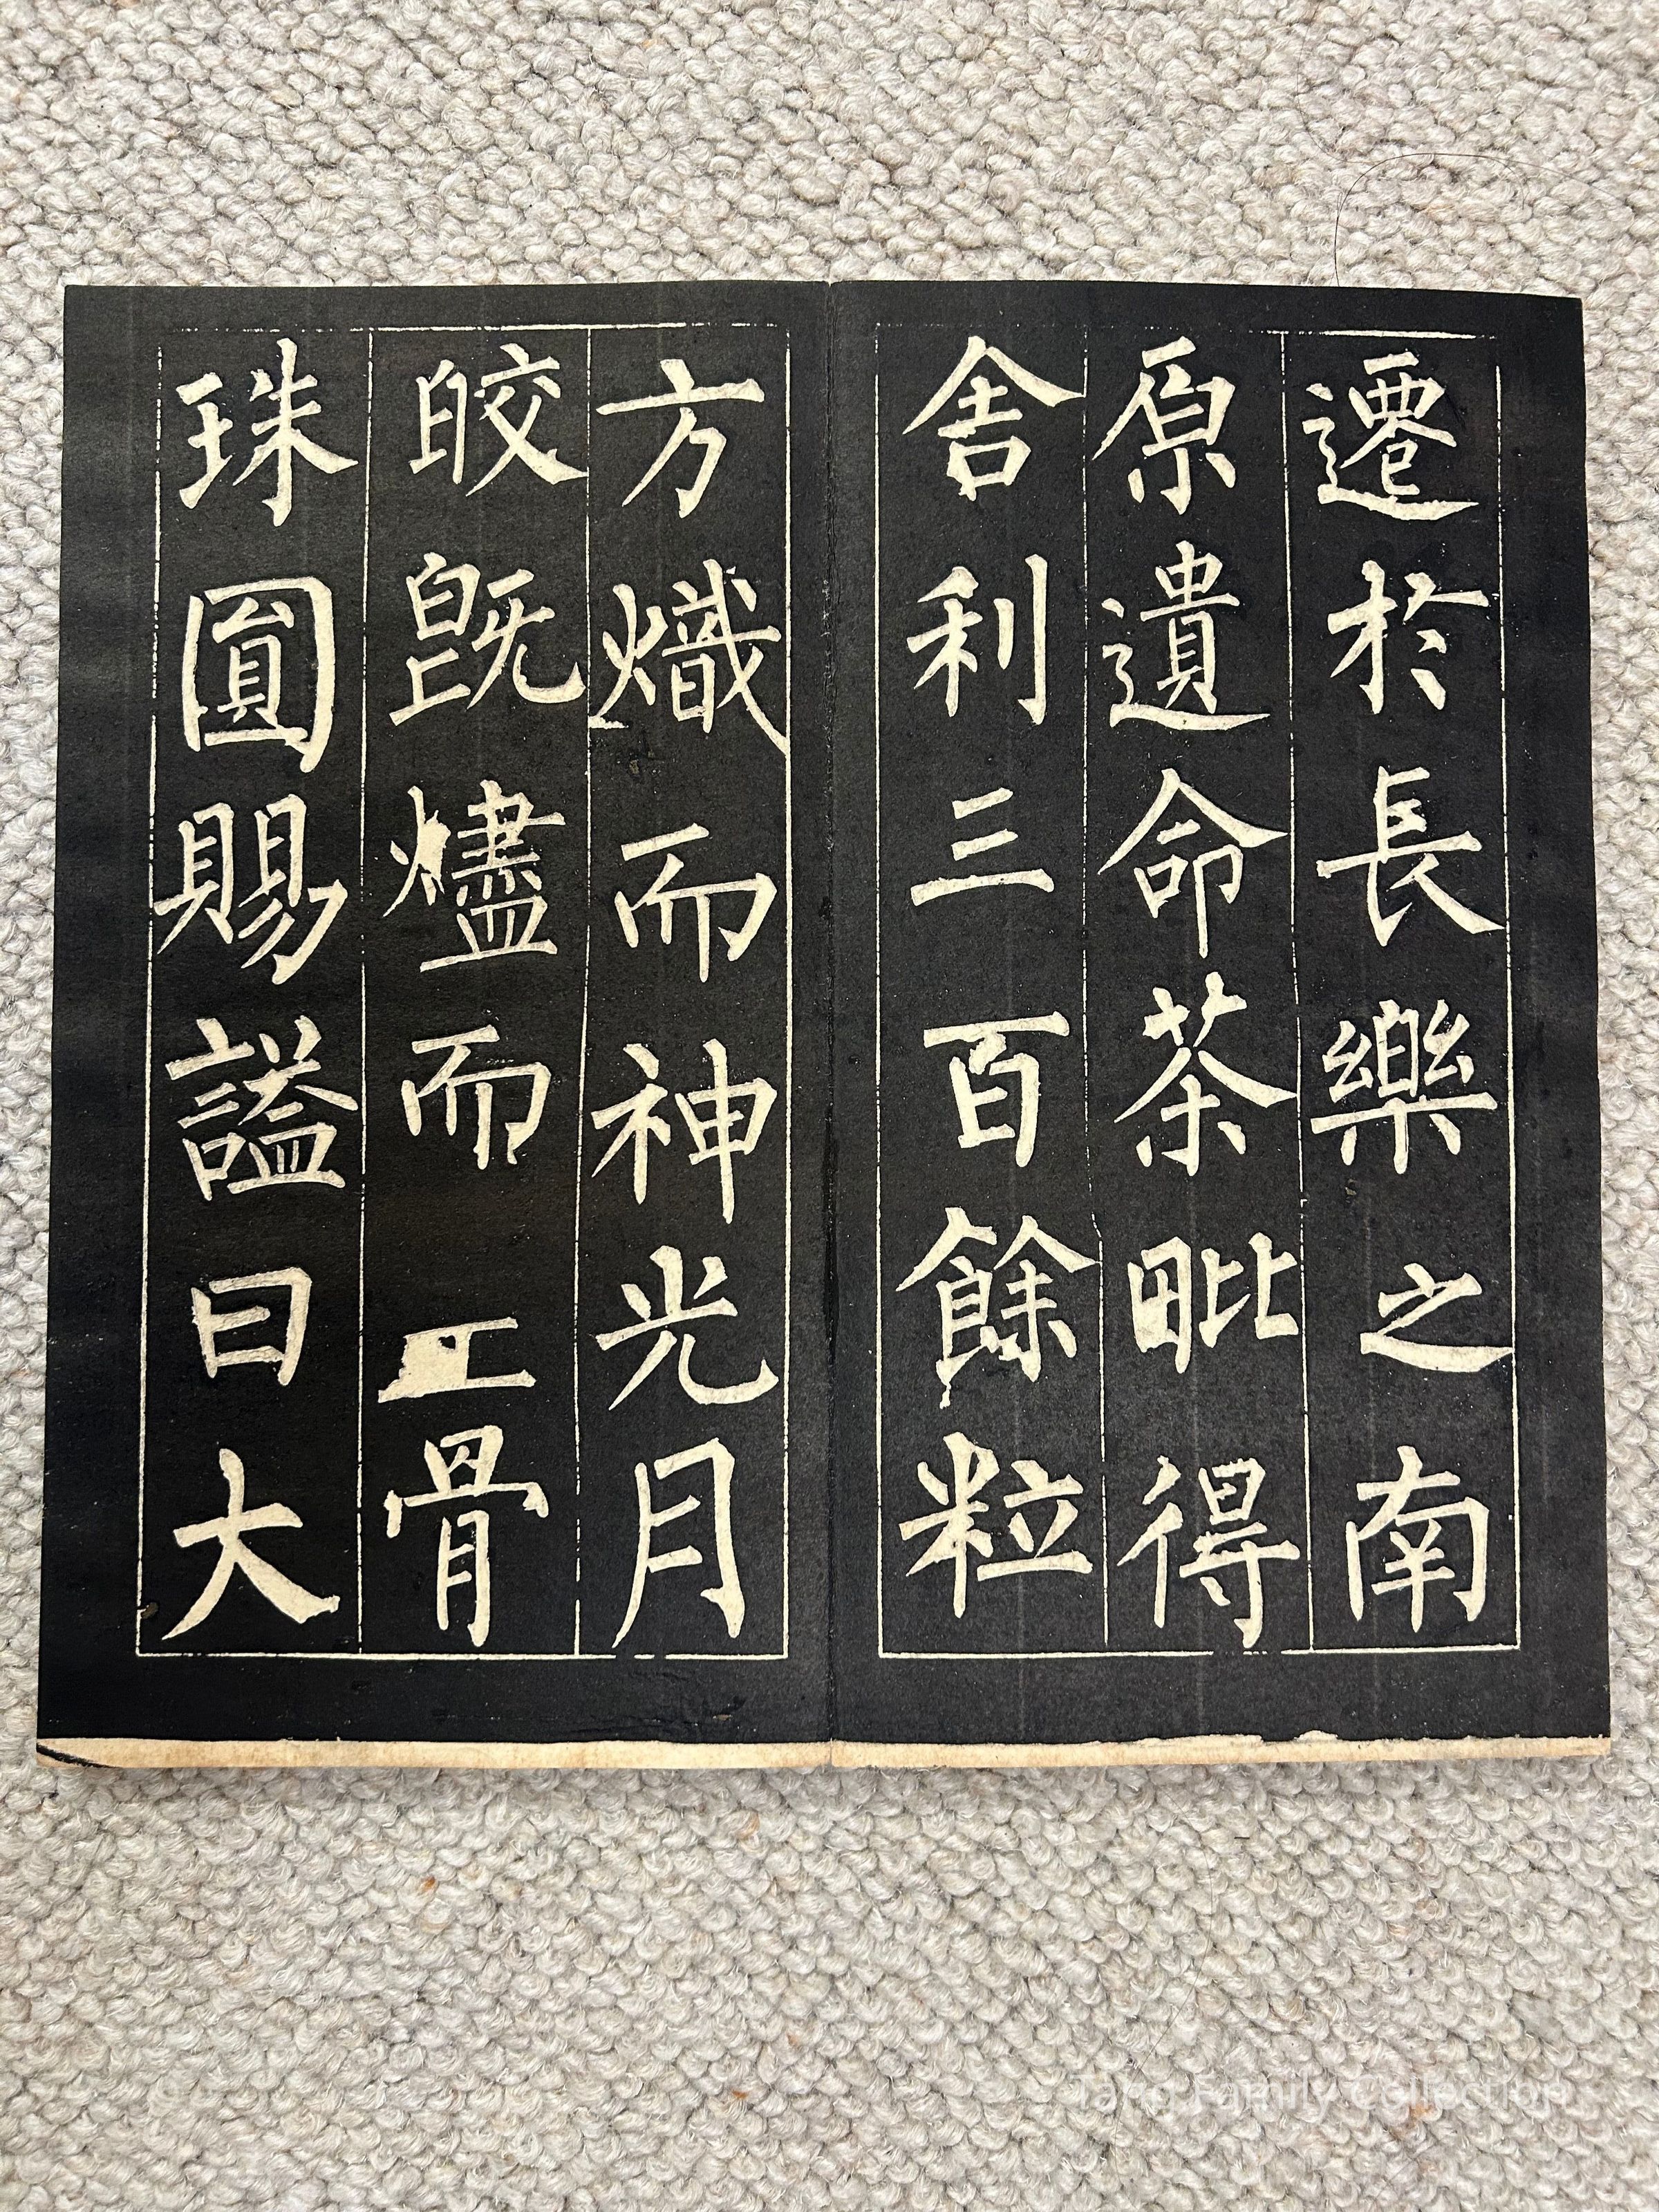 遷於長樂之南
原遺命茶毗得
舍利三百餘粒
方熾而神光月
皎既燼而骨
珠圓賜謚曰大
Tang Family Collection